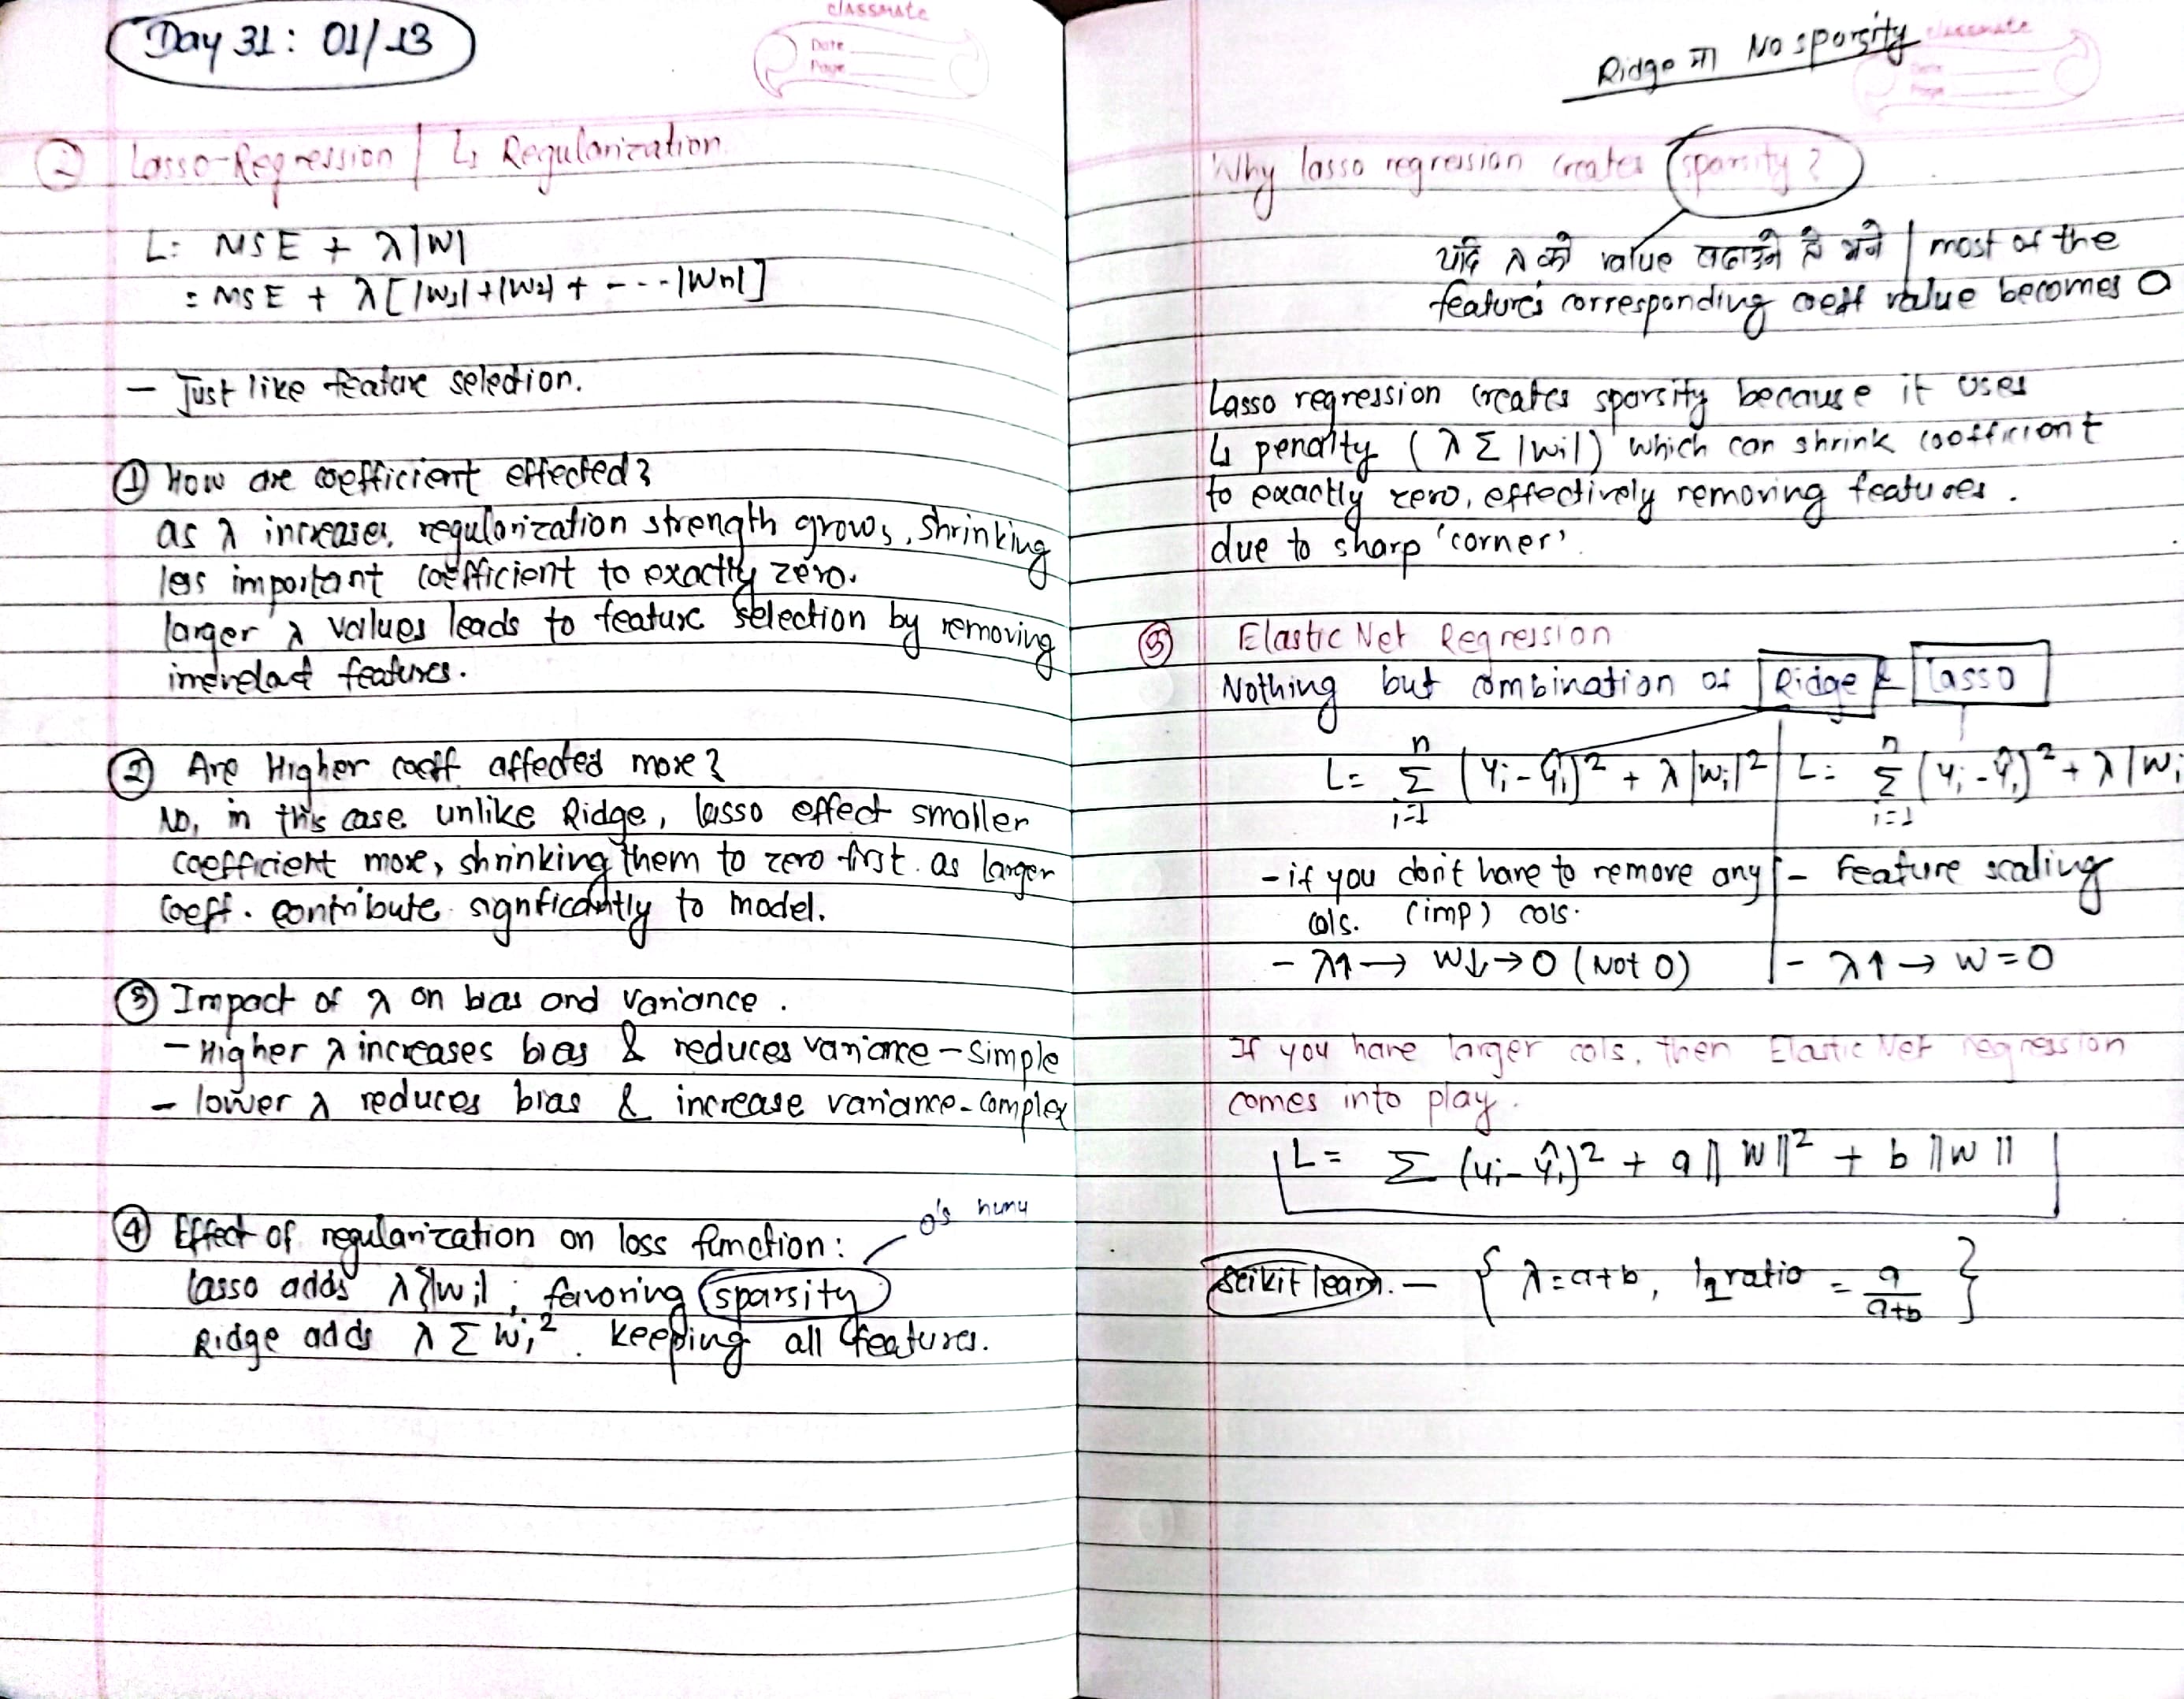 classmate
Date
Page
Day 31: 01/13
② Lasso-Regression | L1 Regularization.
L: MSE + λ|W|
= MSE + λ[|W1|+|W2| + ---|Wn|]
- Just like feature selection.
① How are coefficient effected?
as λ increases, regularization strength grows, shrinking
less important coefficient to exactly zero.
larger λ values leads to feature selection by removing
features.
② Are Higher coeff affected more?
No, in this case unlike Ridge, lasso effect smaller
coefficient more, shrinking them to zero first. as larger
coeff. contribute significantly to model.
③ Impact of λ on bias and variance.
- Higher λ increases bias & reduces variance - simple
- lower λ reduces bias & increase variance - complex
④ Effect of regularization on loss function:
0's hunu
lasso adds λ Σ|wi|, favoring sparsity
Ridge adds λ Σ wi². keeping all features.
classmate
Date
Page
Ridge मा No sparsity
Why lasso regression creates sparsity?
यदि λ को value बढाउने हो भने | most of the
feature's corresponding coeff value becomes 0
Lasso regression creates sparsity because it uses
L1 penalty (λ Σ |wi|) which can shrink coefficient
to exactly zero, effectively removing features.
due to sharp 'corner'.
⑤ Elastic Net Regression
Nothing but combination of Ridge & Lasso
L = Σ_{i=1}^{n} (yi - ŷi)² + λ|wi|² | L: Σ_{i=1}^{n} (yi - ŷi)² + λ|wi
- if you don't have to remove any | - Feature scaling
cols. (imp) cols.
- λ↑ → w↓ → 0 (Not 0) | - λ↑ → w = 0
If you have larger cols, then Elastic Net regression
comes into play.
L = Σ (yi - ŷi)² + a ||w||² + b ||w||
scikit learn. - { λ = a+b, l1 ratio = a/(a+b) }